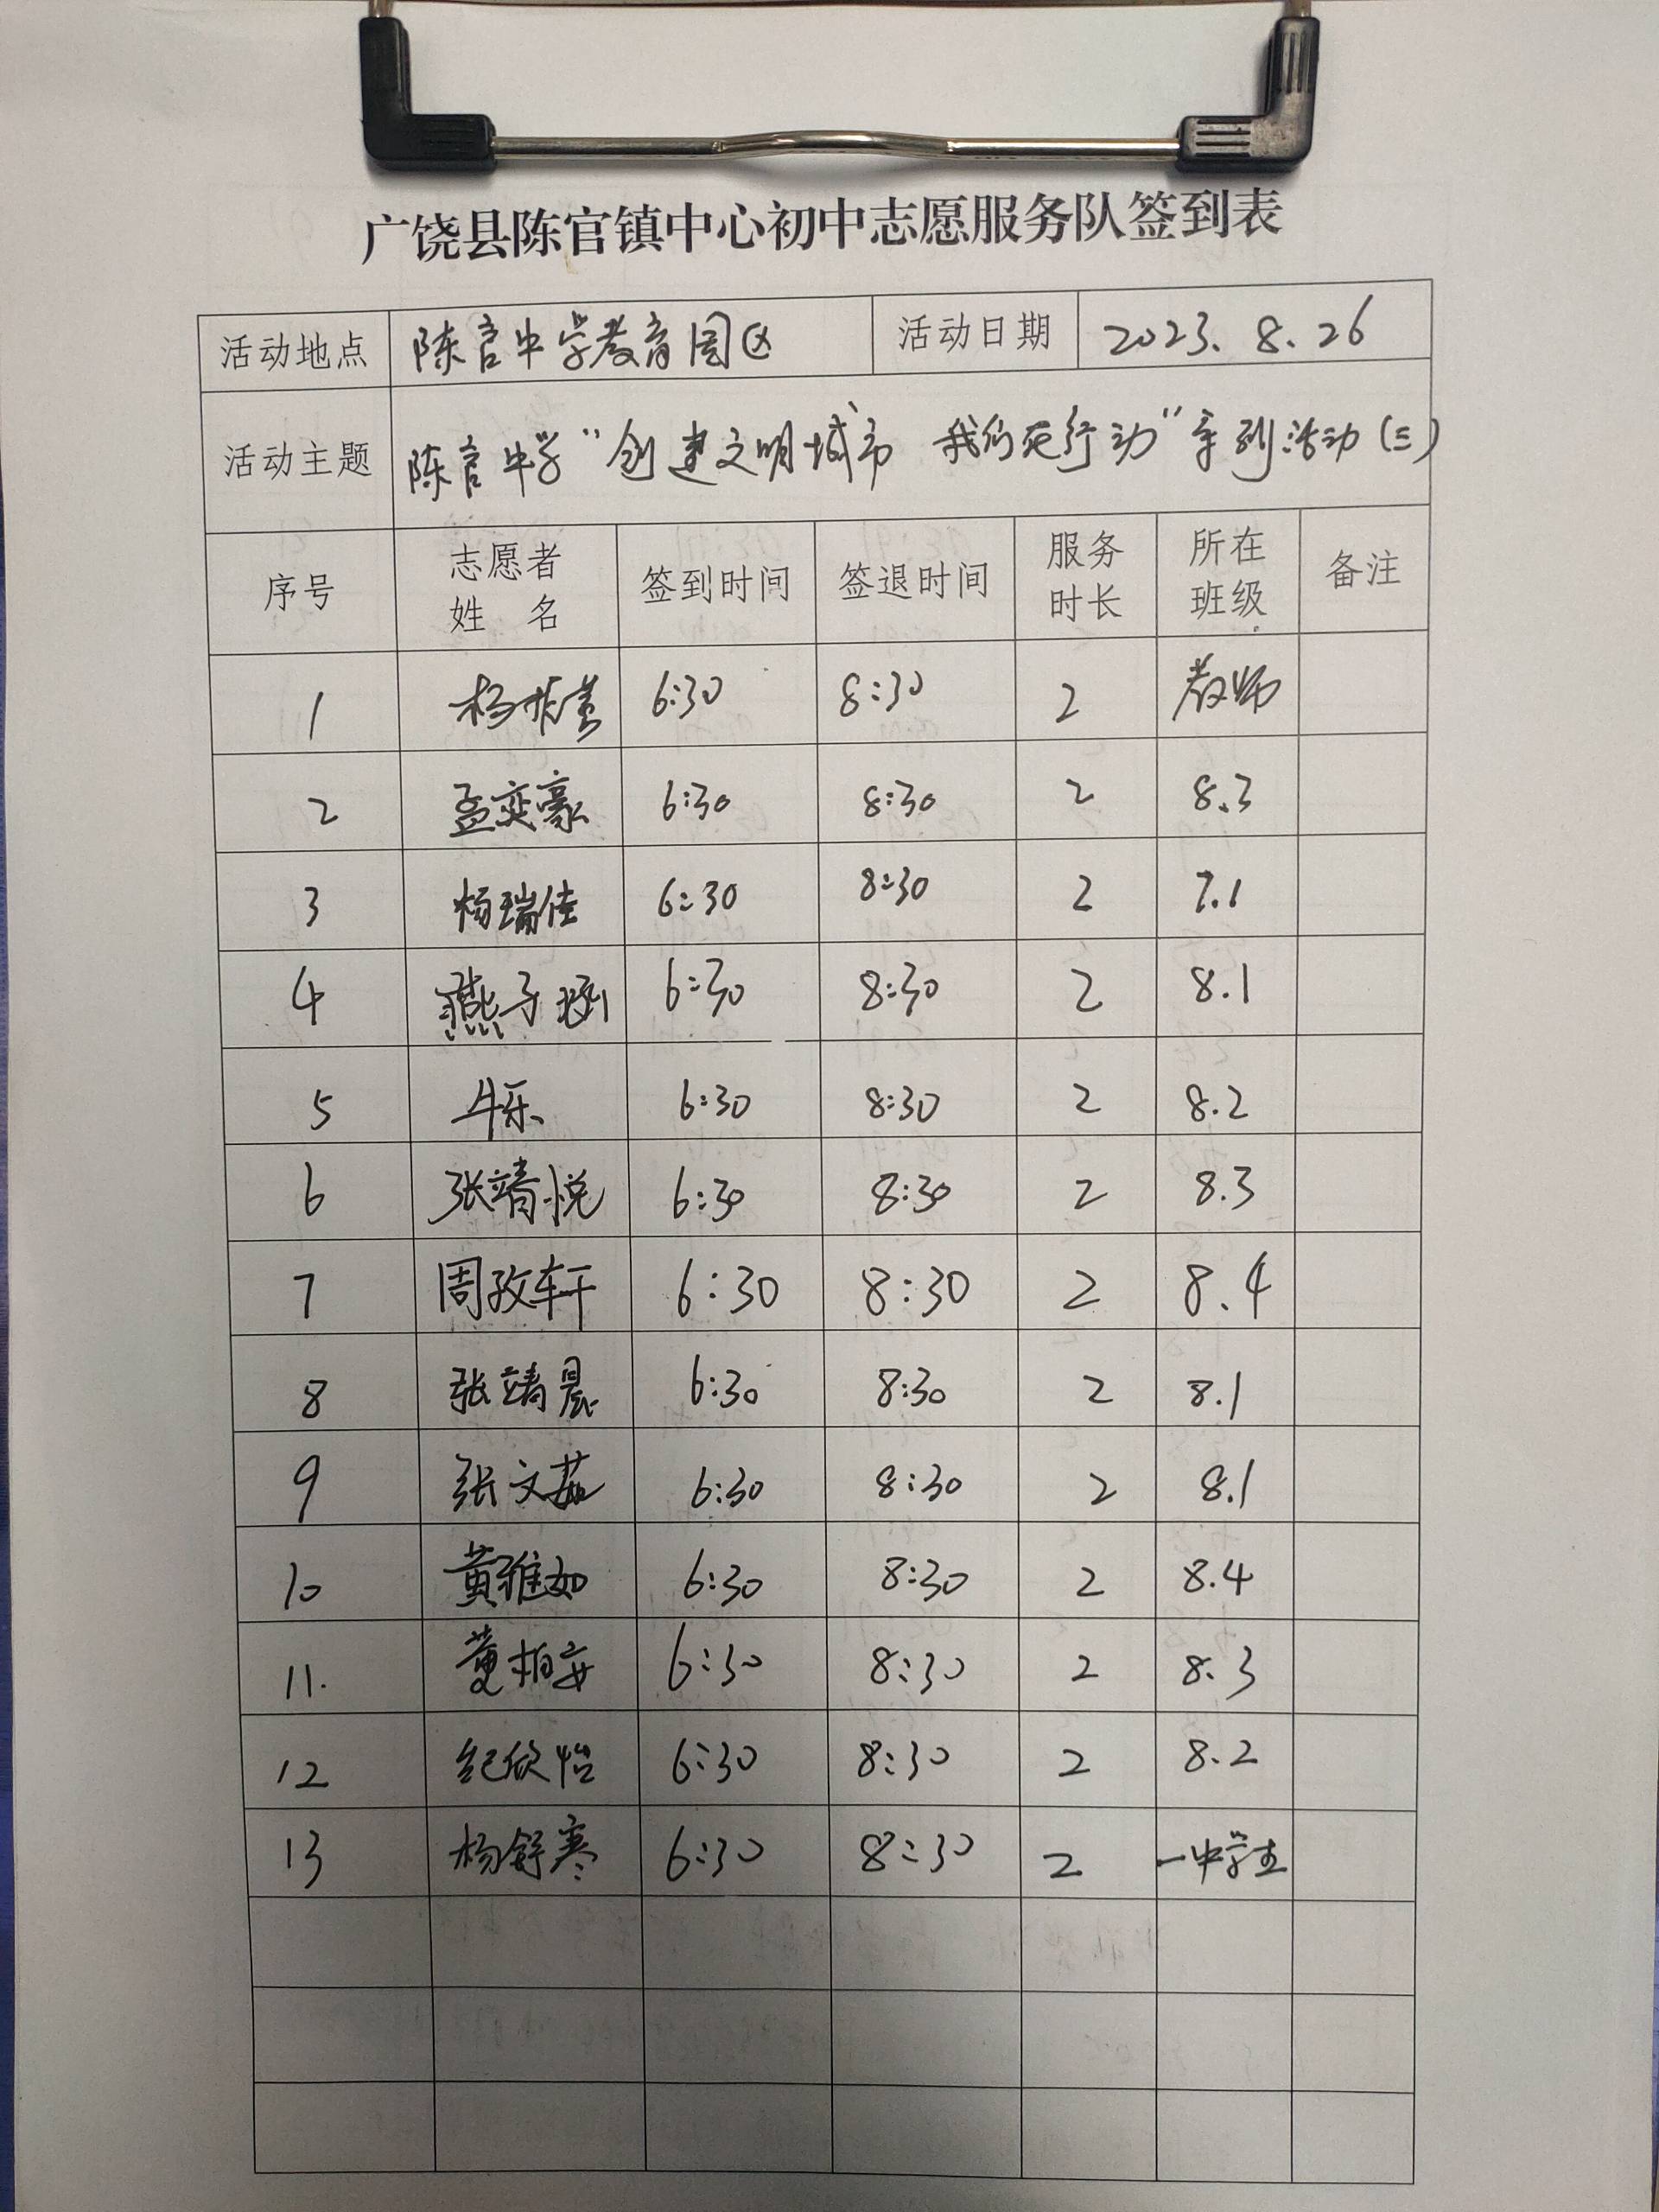 广饶县陈官镇中心初中志愿服务队签到表
活动地点 陈官中学教育园区 活动日期 2023.8.26
活动主题 陈官中学“创建文明城市 我们在行动”系列活动(三)
序号 志愿者姓 名 签到时间 签退时间 服务时长 所在班级 备注
1 杨 6:30 8:30 2 教师
2 孟奕豪 6:30 8:30 2 8.3
3 杨瑞佳 6:30 8:30 2 7.1
4 燕子涵 6:30 8:30 2 8.1
5 牛乐 6:30 8:30 2 8.2
6 张靖悦 6:30 8:30 2 8.3
7 周孜轩 6:30 8:30 2 8.4
8 张靖晨 6:30 8:30 2 8.1
9 张文茹 6:30 8:30 2 8.1
10 黄雅如 6:30 8:30 2 8.4
11. 董柏安 6:30 8:30 2 8.3
12 纪欣怡 6:30 8:30 2 8.2
13 杨舒寒 6:30 8:30 2 一中学生